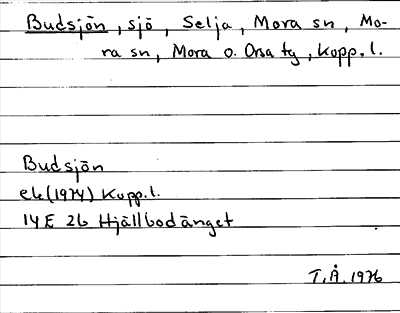 Budsjön, sjö, Selja, Mora sn, Mo-
ra sn, Mora o. Orsa tg, Kopp. l.
Budsjön
ek (1974) Kopp. l.
14E 2b Hjällbodänget
T.Å. 1976